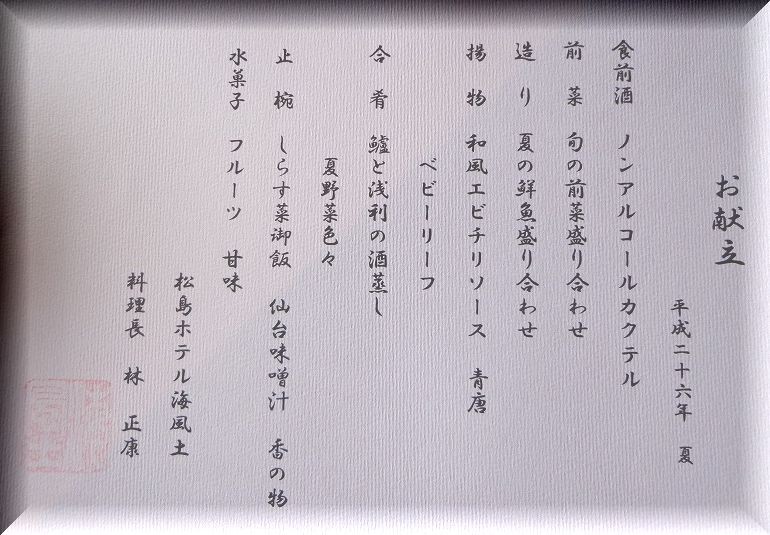 お献立
平成二十六年 夏
食前酒 ノンアルコールカクテル
前菜 旬の前菜盛り合わせ
造り 夏の鮮魚盛り合わせ
揚物 和風エビチリソース 青唐
ベビーリーフ
合肴 鱸と浅利の酒蒸し
夏野菜色々
止椀 しらす菜御飯 仙台味噌汁 香の物
水菓子 フルーツ 甘味
松島ホテル海風土
料理長 林 正康